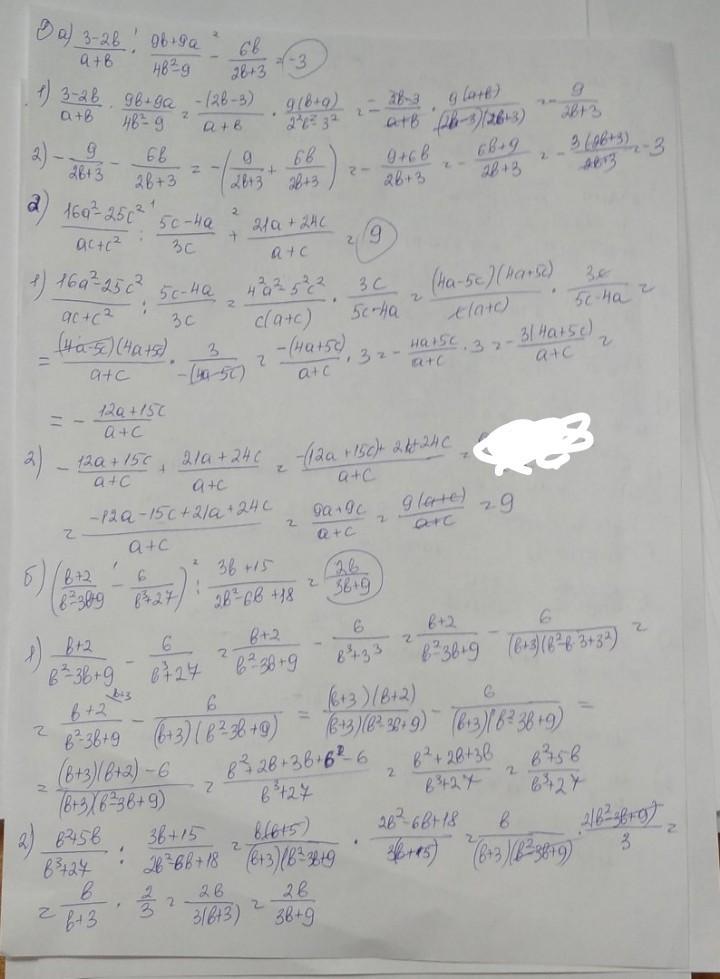 ① а) (3-2b)/(a+b) · (9b+9a)/(4b²-9) - 6b/(2b+3) = -3
1) (3-2b)/(a+b) · (9b+9a)/(4b²-9) = (-(2b-3))/(a+b) · (9(b+a))/(2²b²-3²) = - (2b-3)/(a+b) · (9(a+b))/((2b-3)(2b+3)) = - 9/(2b+3)
2) - 9/(2b+3) - 6b/(2b+3) = -(9/(2b+3) + 6b/(2b+3)) = - (9+6b)/(2b+3) = - (6b+9)/(2b+3) = - (3(2b+3))/(2b+3) = -3
2) (16a²-25c²)/(ac+c²) : (5c-4a)/3c + (21a+24c)/(a+c) = 9
1) (16a²-25c²)/(ac+c²) : (5c-4a)/3c = (4²a²-5²c²)/(c(a+c)) · 3c/(5c-4a) = ((4a-5c)(4a+5c))/(c(a+c)) · 3c/(5c-4a) =
= ((4a-5c)(4a+5c))/(a+c) · 3/(-(4a-5c)) = (-(4a+5c))/(a+c) · 3 = - (4a+5c)/(a+c) · 3 = - (3(4a+5c))/(a+c) =
= - (12a+15c)/(a+c)
2) - (12a+15c)/(a+c) + (21a+24c)/(a+c) = (-(12a+15c)+21a+24c)/(a+c) =
= (-12a-15c+21a+24c)/(a+c) = (9a+9c)/(a+c) = (9(a+c))/(a+c) = 9
б) ((b+2)/(b²-3b+9) - 6/(b³+27)) : (3b+15)/(2b²-6b+18) = 2b/(3b+9)
1) (b+2)/(b²-3b+9) - 6/(b³+27) = (b+2)/(b²-3b+9) - 6/(b³+3³) = (b+2)/(b²-3b+9) - 6/((b+3)(b²-b·3+3²)) =
= (b+2)/(b²-3b+9) b+3 - 6/((b+3)(b²-3b+9)) = ((b+3)(b+2))/((b+3)(b²-3b+9)) - 6/((b+3)(b²-3b+9)) =
= ((b+3)(b+2)-6)/((b+3)(b²-3b+9)) = (b²+2b+3b+6-6)/(b³+27) = (b²+2b+3b)/(b³+27) = (b²+5b)/(b³+27)
2) (b²+5b)/(b³+27) : (3b+15)/(2b²-6b+18) = (b(b+5))/((b+3)(b²-3b+9)) · (2b²-6b+18)/(3b+15) = b/((b+3)(b²-3b+9)) · (2(b²-3b+9))/3 =
= b/(b+3) · 2/3 = 2b/(3(b+3)) = 2b/(3b+9)